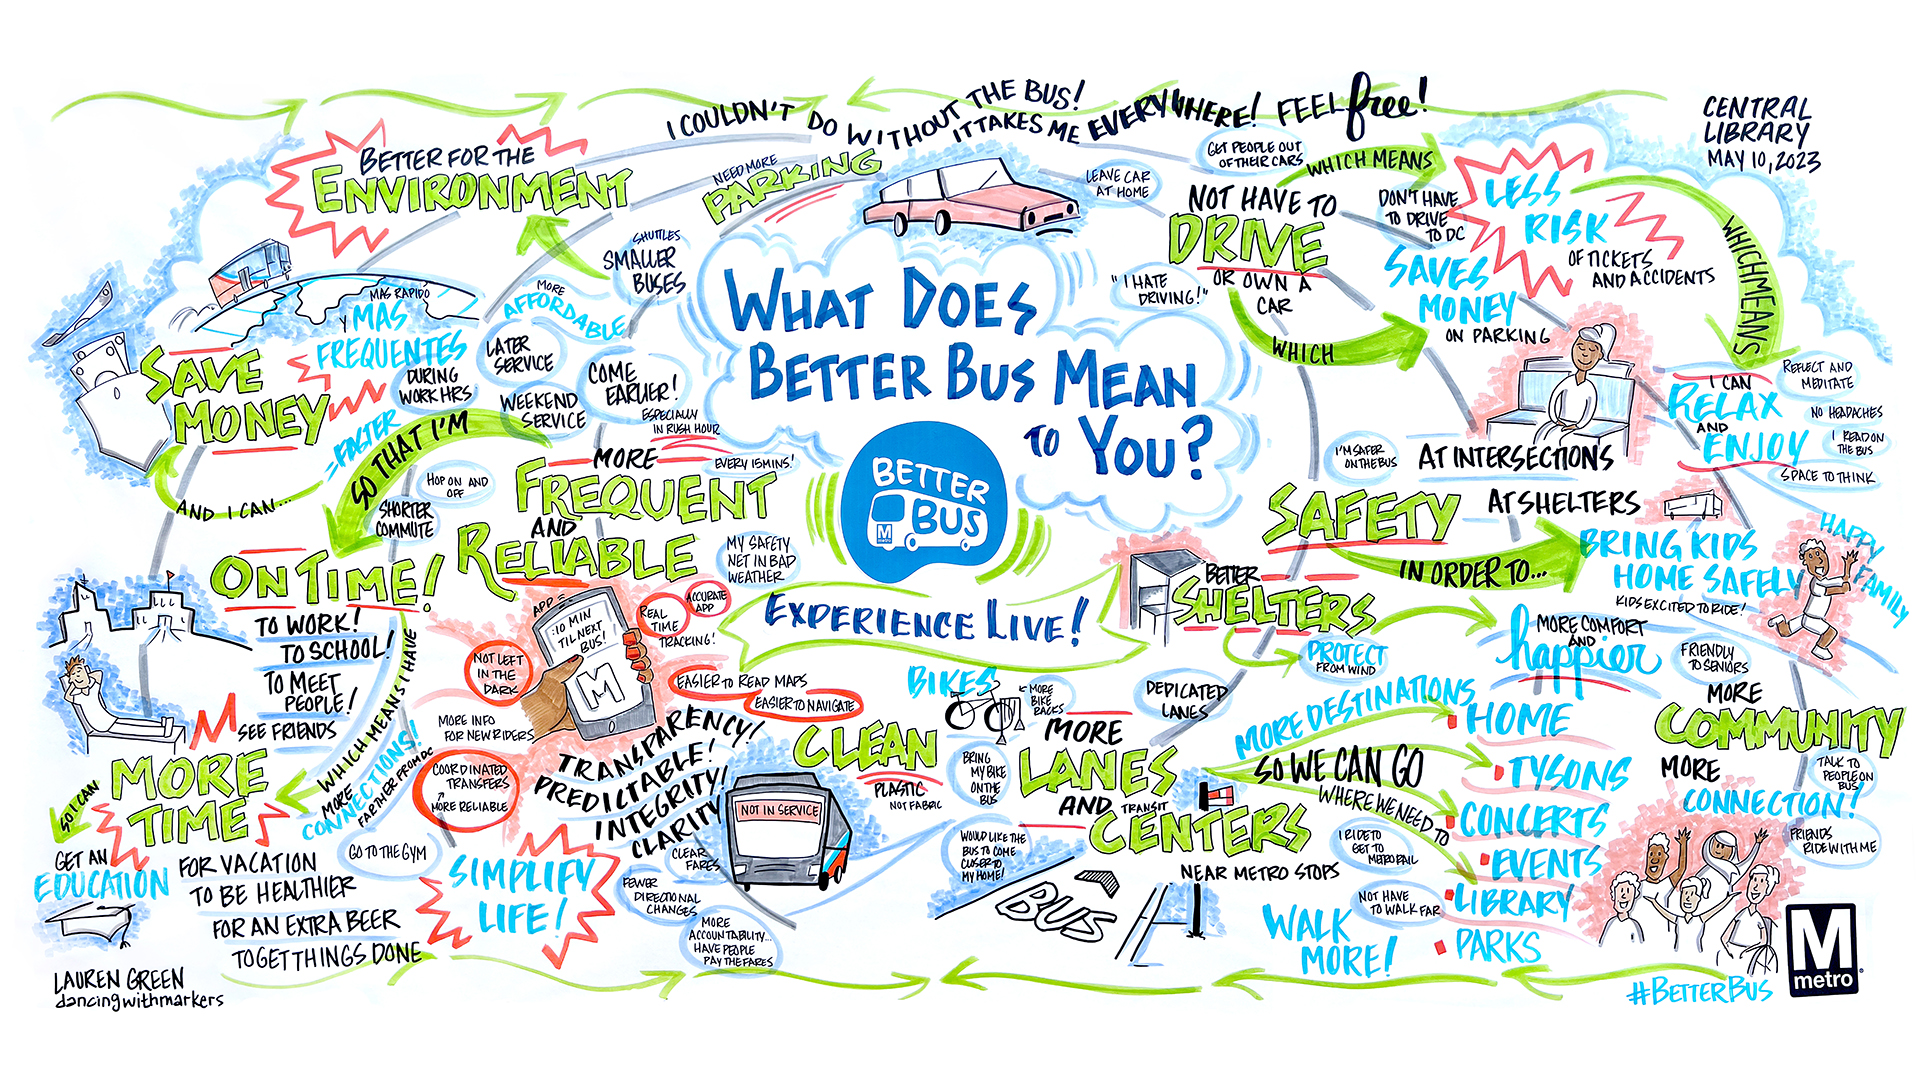 I COULDN'T DO WITHOUT THE BUS!
IT TAKES ME EVERYWHERE! FEEL free!
CENTRAL
LIBRARY
MAY 10, 2023
BETTER FOR THE
ENVIRONMENT
NEED MORE
PARKING
SHUTTLES
SMALLER
BUSES
MORE
AFFORDABLE
LEAVE CAR
AT HOME
GET PEOPLE OUT
OF THEIR CARS
WHICH MEANS
NOT HAVE TO
DRIVE
OR OWN A
CAR
"I HATE
DRIVING!"
WHICH
DON'T HAVE
TO DRIVE
TO DC
SAVES
MONEY
ON PARKING
LESS
RISK
OF TICKETS
AND ACCIDENTS
WHICH MEANS
I CAN
RELAX
AND
ENJOY
REFLECT AND
MEDITATE
NO HEADACHES
I READ ON
THE BUS
SPACE TO THINK
WHAT DOES
BETTER BUS MEAN
TO YOU?
BETTER
BUS
M
metro
EXPERIENCE LIVE!
MAS RAPIDO
Y MAS
FREQUENTES
SAVE
MONEY
=FASTER
AND I CAN...
DURING
WORK HRS
LATER
SERVICE
WEEKEND
SERVICE
COME
EARLIER!
ESPECIALLY
IN RUSH HOUR
SO THAT I'M
HOP ON AND
OFF
SHORTER
COMMUTE
MORE
FREQUENT
AND
RELIABLE
EVERY 15 MINS!
MY SAFETY
NET IN BAD
WEATHER
ON TIME!
TO WORK!
TO SCHOOL!
TO MEET
PEOPLE!
SEE FRIENDS
WHICH MEANS I HAVE
MORE
CONNECTIONS!
FARTHER FROM DC
MORE
TIME
SO I CAN
GET AN
EDUCATION
FOR VACATION
TO BE HEALTHIER
FOR AN EXTRA BEER
TO GET THINGS DONE
GO TO THE GYM
APP
:10 MIN
'TIL NEXT
BUS!
M
REAL
TIME
TRACKING!
ACCURATE
APP
NOT LEFT
IN THE
DARK
EASIER TO READ MAPS
EASIER TO NAVIGATE
MORE INFO
FOR NEW RIDERS
COORDINATED
TRANSFERS
MORE RELIABLE
TRANSPARENCY!
PREDICTABLE!
INTEGRITY!
CLARITY
SIMPLIFY
LIFE!
CLEAR
FARES
FEWER
DIRECTIONAL
CHANGES
MORE
ACCOUNTABILITY...
HAVE PEOPLE
PAY THE FARES
NOT IN SERVICE
CLEAN
PLASTIC
NOT FABRIC
BIKES
MORE
BIKE
RACKS
BRING
MY BIKE
ON THE
BUS
DEDICATED
LANES
MORE
LANES
AND TRANSIT
CENTERS
NEAR METRO STOPS
WOULD LIKE THE
BUS TO COME
CLOSER TO
MY HOME!
BUS
I'M SAFER
ON THE BUS
AT INTERSECTIONS
SAFETY
AT SHELTERS
IN ORDER TO...
BRING KIDS
HOME SAFELY
KIDS EXCITED TO RIDE!
HAPPY
FAMILY
BETTER
SHELTERS
PROTECT
FROM WIND
MORE COMFORT
AND
happier
FRIENDLY
TO SENIORS
MORE DESTINATIONS
SO WE CAN GO
WHERE WE NEED TO
HOME
TYSONS
CONCERTS
EVENTS
LIBRARY
PARKS
I RIDE TO
GET TO
METRORAIL
NOT HAVE
TO WALK FAR
WALK
MORE!
MORE
COMMUNITY
MORE
CONNECTION!
TALK TO
PEOPLE ON
BUS
FRIENDS
RIDE WITH ME
LAUREN GREEN
dancingwithmarkers
#BETTERBUS
M
metro